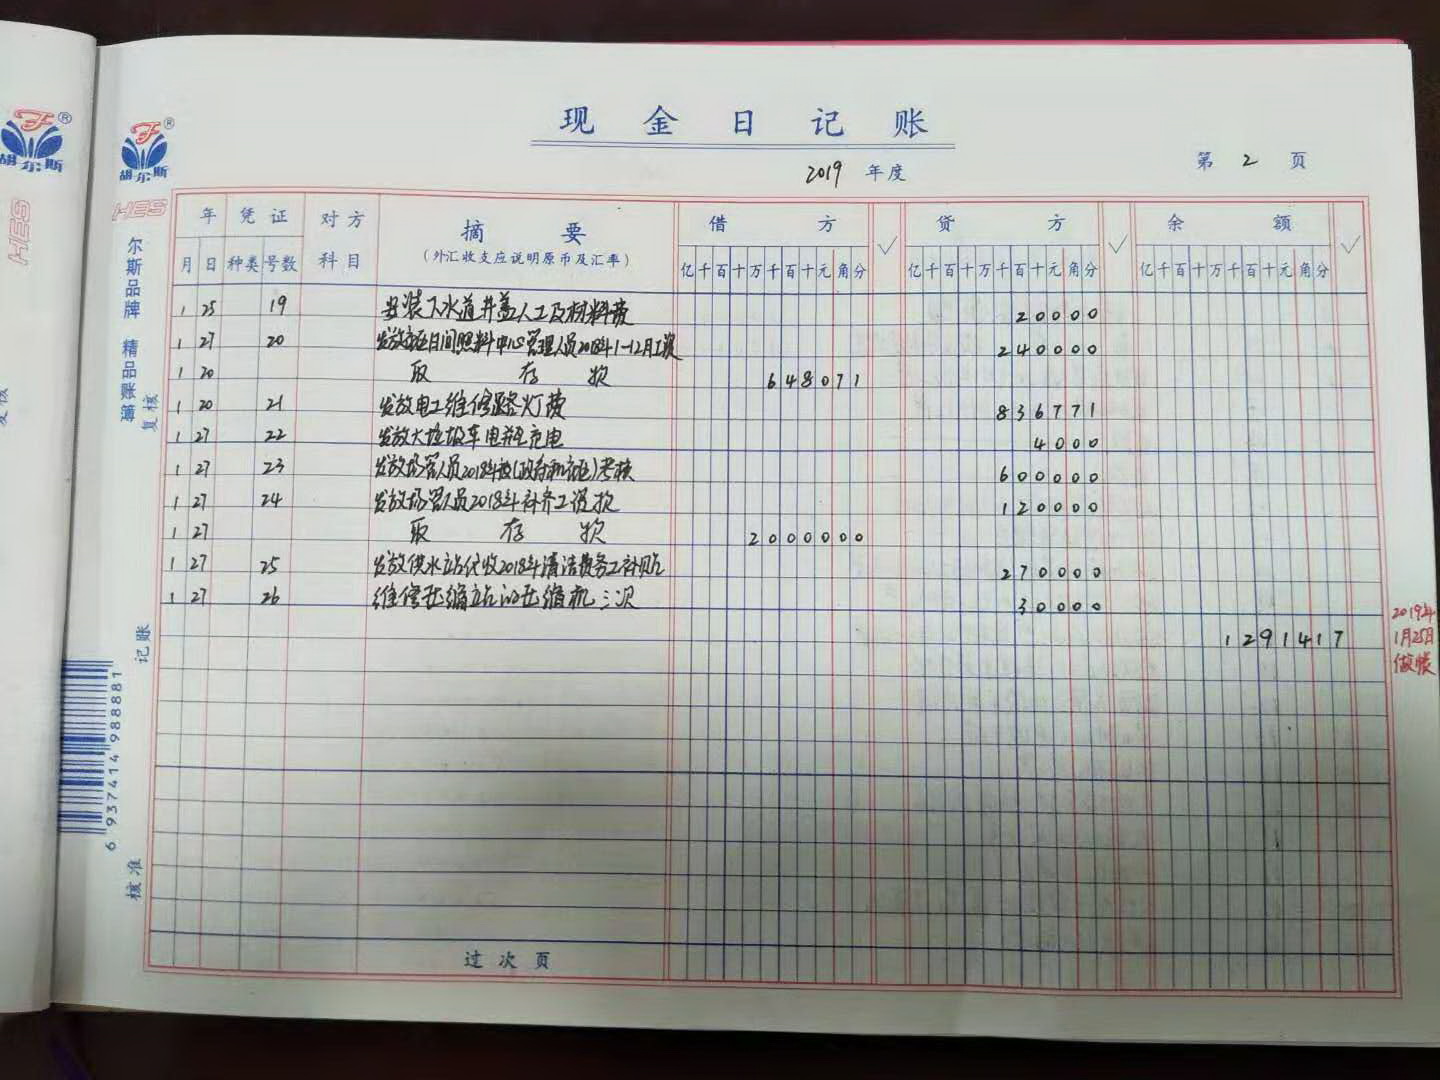 现金日记账
2019 年度
第 2 页
胡尔斯
HES
胡尔斯
HES
尔斯品牌 精品账簿
年 凭证 对方科目 摘要 借方 ✓ 贷方 ✓ 余额 ✓
月 日 种类 号数 (外汇收支应说明原币及汇率) 亿千百十万千百十元角分 亿千百十万千百十元角分 亿千百十万千百十元角分
1 25 19 安装下水道井盖人工及材料费 20000
1 27 20 发放社区日间照料中心管理人员2018年1-12月工资 240000
1 20 取存款 648071
1 20 21 发放电工维修路灯费 836771
1 27 22 发放大垃圾车电瓶充电 4000
1 27 23 发放协管人员2018年度(政府和社区)考核 600000
1 27 24 发放协管人员2018年补齐工资款 120000
1 27 取存款 2000000
1 27 25 发放供水站代收2018年清洁费务工补贴 270000
1 27 26 维修压缩站的压缩机三次 30000
1291417
2019年
1月25日
做账
过次页
复核
记账
核准
6 937414 988881
复核